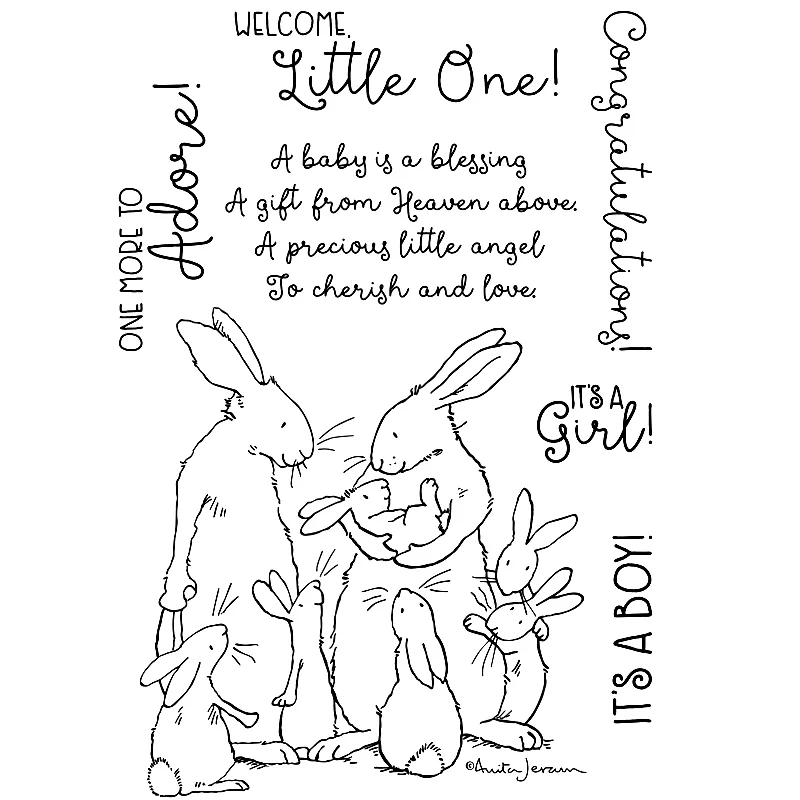 WELCOME,
Little One!
A baby is a blessing
A gift from Heaven above.
A precious little angel
To cherish and love.
ONE MORE TO
Adore!
Congratulations!
IT'S A
Girl!
IT'S A BOY!
©Anita Jeram